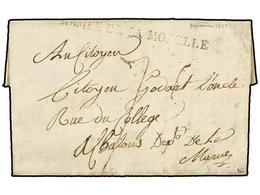 MOSELLE
Au Citoyen
Citoyen Godart l'oncle
Rue du College
a Chalons Dept De la
Marne